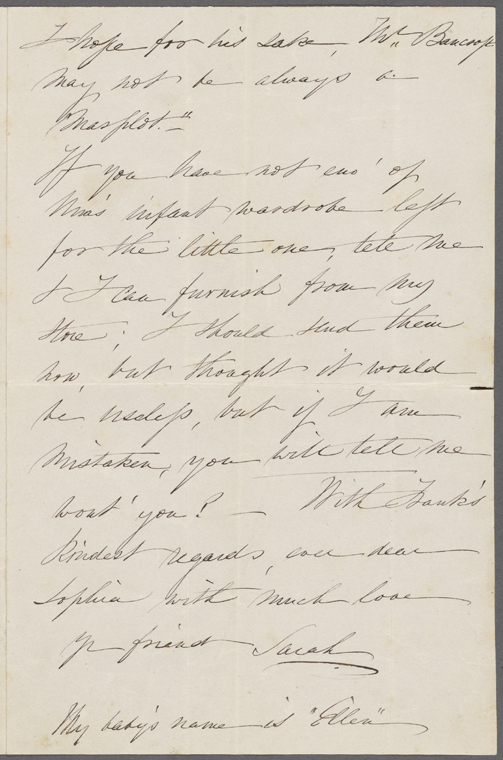 I hope for his sake, Mr. Bancroft
may not be always a
"Marplot."
If you have not eno' of
Una's infant wardrobe left
for the little one, tell me
& I can furnish from my
store; I should send them
now, but thought it would
be useless, but if I am
mistaken, you will tell me
wont' you? — With Frank's
kindest regards, ever dear
Sophia with much love
yr friend Sarah
My baby's name is "Ellen"